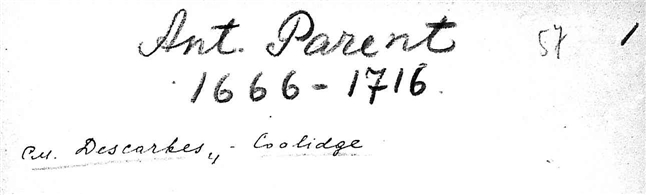 Ant. Parent 57 1
1666-1716.
см. Descartes, - Coolidge